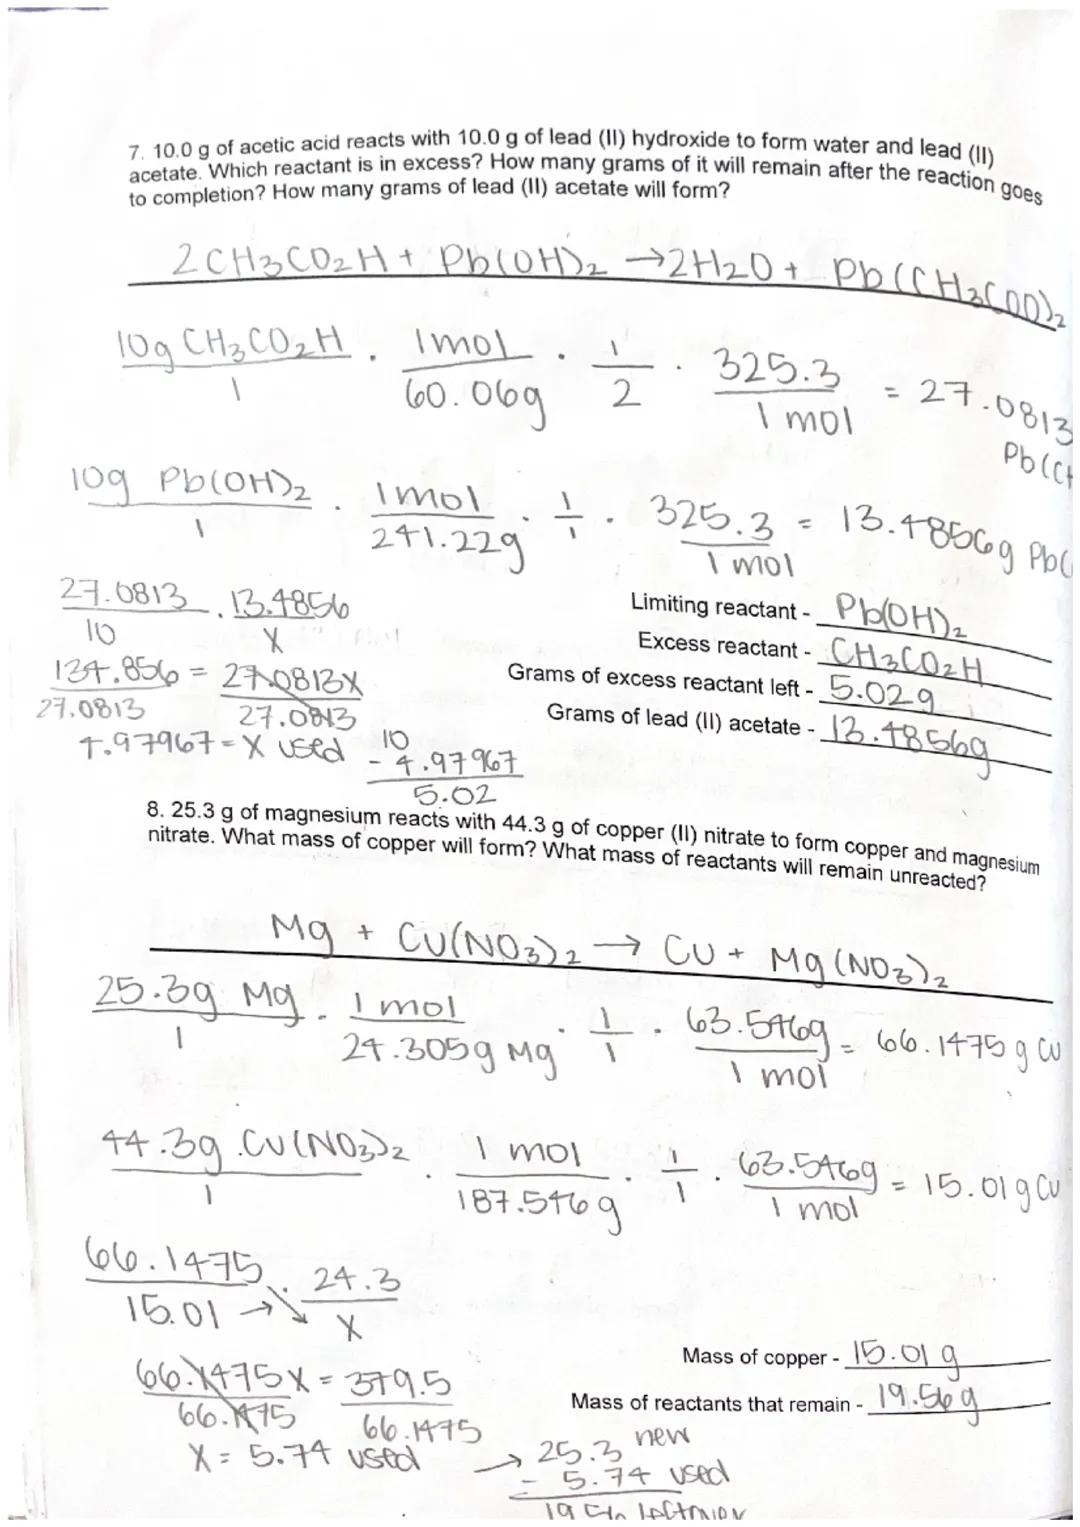 7. 10.0 g of acetic acid reacts with 10.0 g of lead (II) hydroxide to form water and lead (II)
acetate. Which reactant is in excess? How many grams of it will remain after the reaction goes
to completion? How many grams of lead (II) acetate will form?
2CH3CO2H + Pb(OH)2 → 2H2O + Pb(CH3COO)2
10g CH3CO2H / 1 · 1mol / 60.06g · 1/2 · 325.3 / 1 mol = 27.0813
Pb(CH
10g Pb(OH)2 / 1 · 1mol / 241.22g · 1/1 · 325.3 / 1 mol = 13.4856g Pb(
27.0813 / 10 · 13.4856 / X
134.856 / 27.0813 = 27.0813X / 27.0813
4.97967 = X used
10
- 4.97967
5.02
Limiting reactant - Pb(OH)2
Excess reactant - CH3CO2H
Grams of excess reactant left - 5.02g
Grams of lead (II) acetate - 13.4856g
8. 25.3 g of magnesium reacts with 44.3 g of copper (II) nitrate to form copper and magnesium
nitrate. What mass of copper will form? What mass of reactants will remain unreacted?
Mg + Cu(NO3)2 → Cu + Mg(NO3)2
25.3g Mg / 1 · 1 mol / 24.305g Mg · 1/1 · 63.546g / 1 mol = 66.1475 g Cu
44.3g Cu(NO3)2 / 1 · 1 mol / 187.546g · 1/1 · 63.546g / 1 mol = 15.01 g Cu
66.1475 / 15.01 → · 24.3 / X
66.1475X / 66.1475 = 379.5 / 66.1475
X = 5.74 used
Mass of copper - 15.01 g
Mass of reactants that remain - 19.56 g
→ 25.3 new
- 5.74 used
19.56 leftover